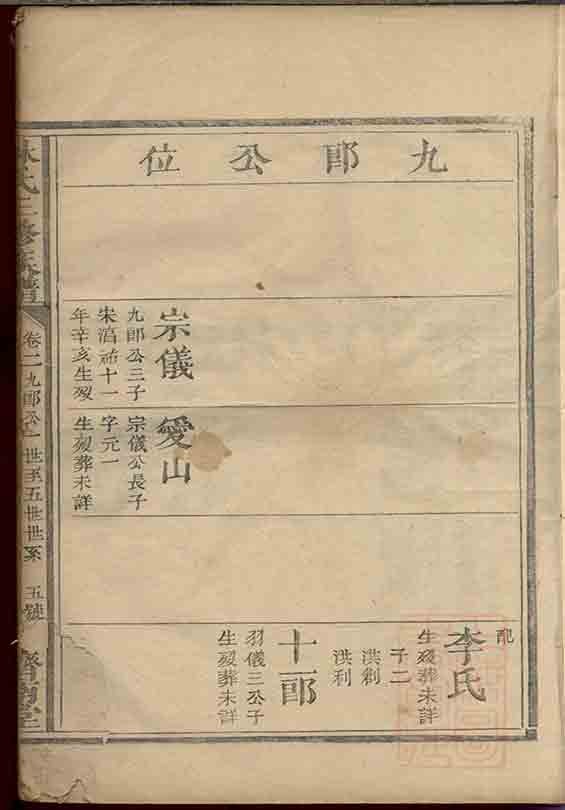 九郎公位
宗儀
九郎公三子
宋淳祐十一
年辛亥生歿
愛山
宗儀公長子
字元一
生歿葬未詳
配
李氏
生歿葬未詳
子二
洪創
洪利
十一郎
羽儀三公子
生歿葬未詳
氏三修族譜
卷二九郎公一世至五世世系
五號